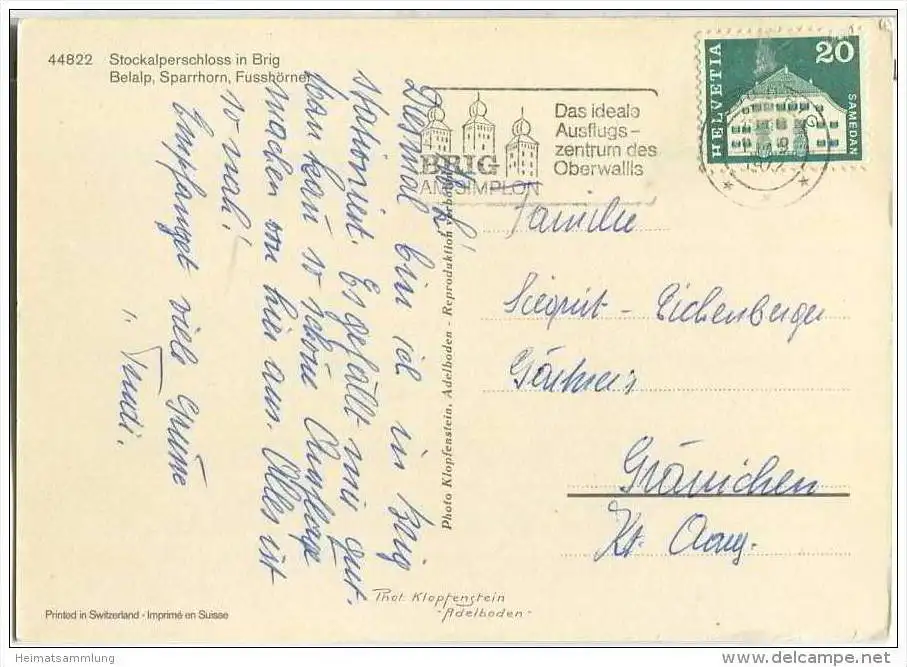 44822 Stockalperschloss in Brig
Belalp, Sparrhorn, Fusshörner
BRIG
AM SIMPLON
Das ideale
Ausflugs-
zentrum des
Oberwallis
HELVETIA
20
SAMEDAN
Diesmal bin ich in Brig
stationiert. Es gefällt mir gut.
Man kan so schöne Ausflüge
machen von hier aus. Alles ist
so nah!
Empfanget viele Grüsse
Trudi.
Photo Klopfenstein, Adelboden - Reproduktion verboten
Familie
Siegrist - Eichenberger
Gärtnerei
Gränichen
Kt. Aarg.
Phot. Klopfenstein
- Adelboden -
Printed in Switzerland - Imprimé en Suisse
Heimatsammlung
delcampe.net